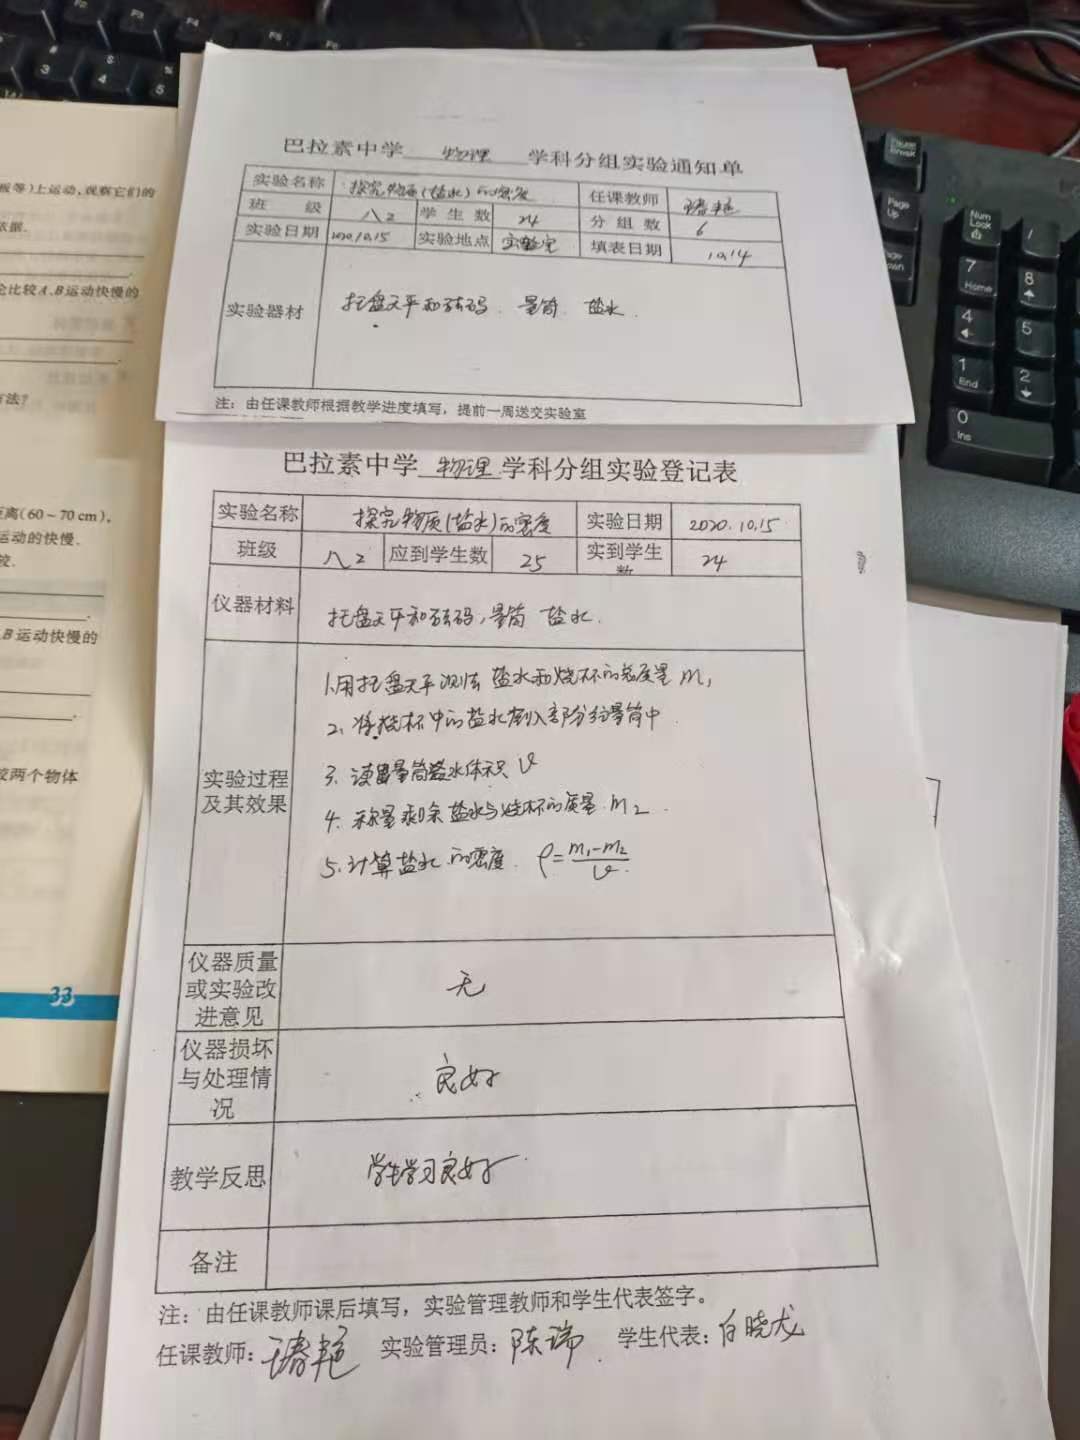 巴拉素中学 物理 学科分组实验通知单
实验名称 探究物质(盐水)的密度 任课教师 王春艳
班 级 八2 学生数 24 分组数 6
实验日期 2020.10.15 实验地点 实验室 填表日期 10.14
实验器材 托盘天平和砝码、量筒、盐水.
注：由任课教师根据教学进度填写，提前一周送交实验室
巴拉素中学 物理 学科分组实验登记表
实验名称 探究物质(盐水)的密度 实验日期 2020.10.15
班级 八2 应到学生数 25 实到学生数 24
仪器材料 托盘天平和砝码，量筒 盐水.
实验过程及其效果
1.用托盘天平测出 盐水和烧杯的总质量 m₁
2、将烧杯中的盐水倒入部分到量筒中
3、读出量筒盐水体积 V
4、称量剩余盐水与烧杯的质量 m₂.
5、计算盐水的密度. ρ=(m₁-m₂)/V.
仪器质量或实验改进意见 无
仪器损坏与处理情况 良好
教学反思 学生学习良好
备注
注：由任课教师课后填写，实验管理教师和学生代表签字。
任课教师: 王春艳 实验管理员: 陈瑞 学生代表: 白晓龙
板等)上运动,观察它们的
依据.
论比较A、B运动快慢的
方法?
距离(60~70 cm),
运动的快慢.
较.
B运动快慢的
较两个物体
33
F2
F3
F4
3
4
5
Pause Break
Page Up
Num Lock
/
7 Home
8
4
5
1 End
2
0 Ins